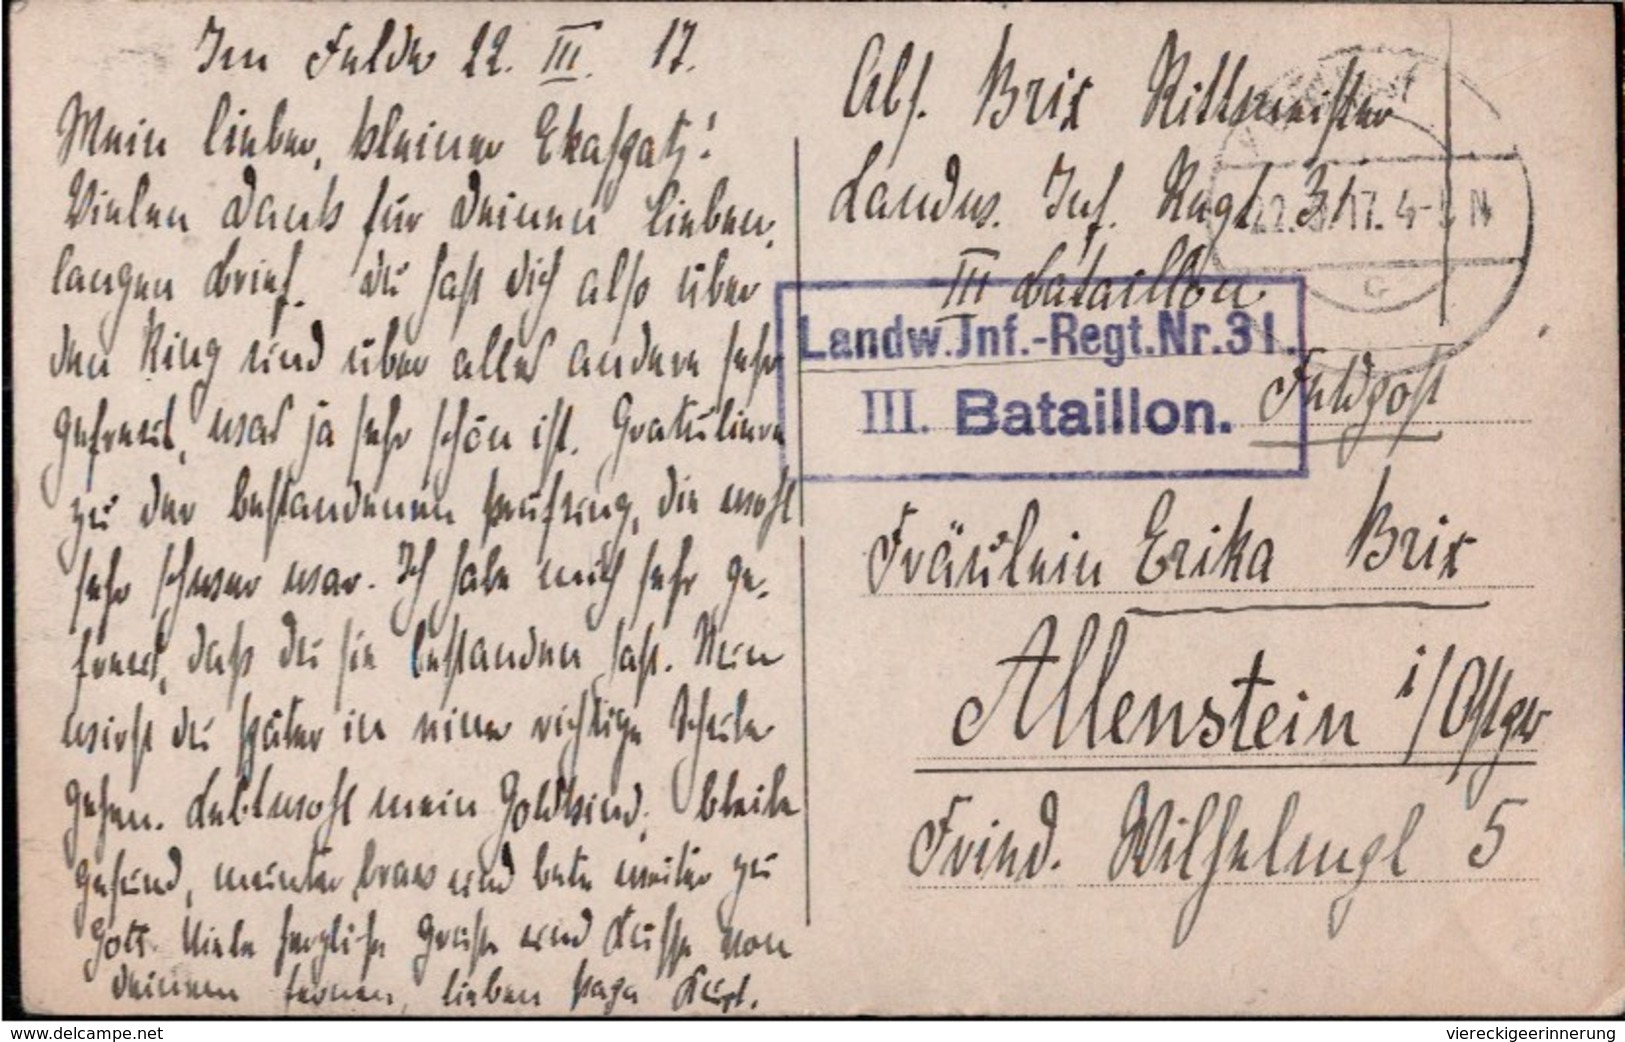 Im Felde 22. III. 17.
Mein lieber, kleiner Ekaspatz!
Vielen Dank für Deinen lieben,
langen Brief. Du hast dich also über
den Ring und über alles andere sehr
gefreut, was ja sehr schön ist. Gratuliere
zu der bestandenen Prüfung, die wohl
sehr schwer war. Ich habe mich sehr ge-
freut, daß du sie bestanden hast. Nun
wirst du später in eine richtige Schule
gehen. Lebtwohl mein Goldkind, bleibe
gesund, munter brav und bete weiter zu
Gott. Viele herzliche Grüße und Küsse von
Deinem fernen, lieben Papa Kurt.
Abs. Brix Rittmeister
Landw. Inf. Regt. 31
III Bataillon
Landw. Inf.-Regt. Nr. 31.
III. Bataillon.
22. 17. 4-5 N
c
Feldpost
Fräulein Erika Brix
Allenstein i/Ostpr
Fried. Wilhelmpl 5
www.delcampe.net
viereckigeerinnerung